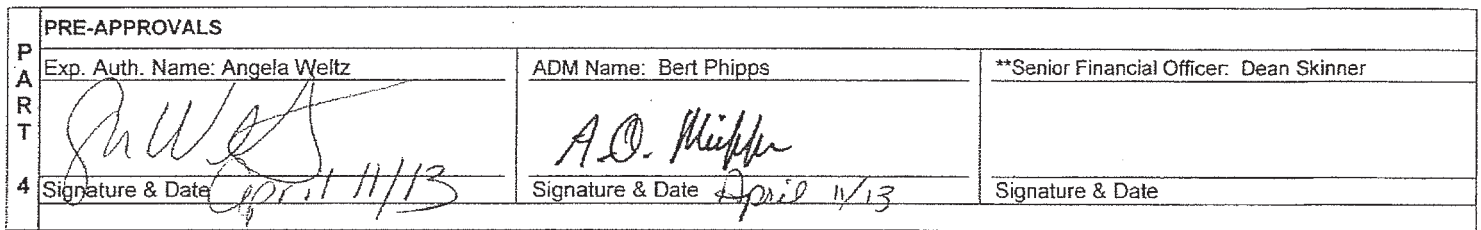 PART 4
PRE-APPROVALS
Exp. Auth. Name: Angela Weltz
ADM Name: Bert Phipps
**Senior Financial Officer: Dean Skinner
Signature & Date April 11/13
Signature & Date April 11/13
Signature & Date